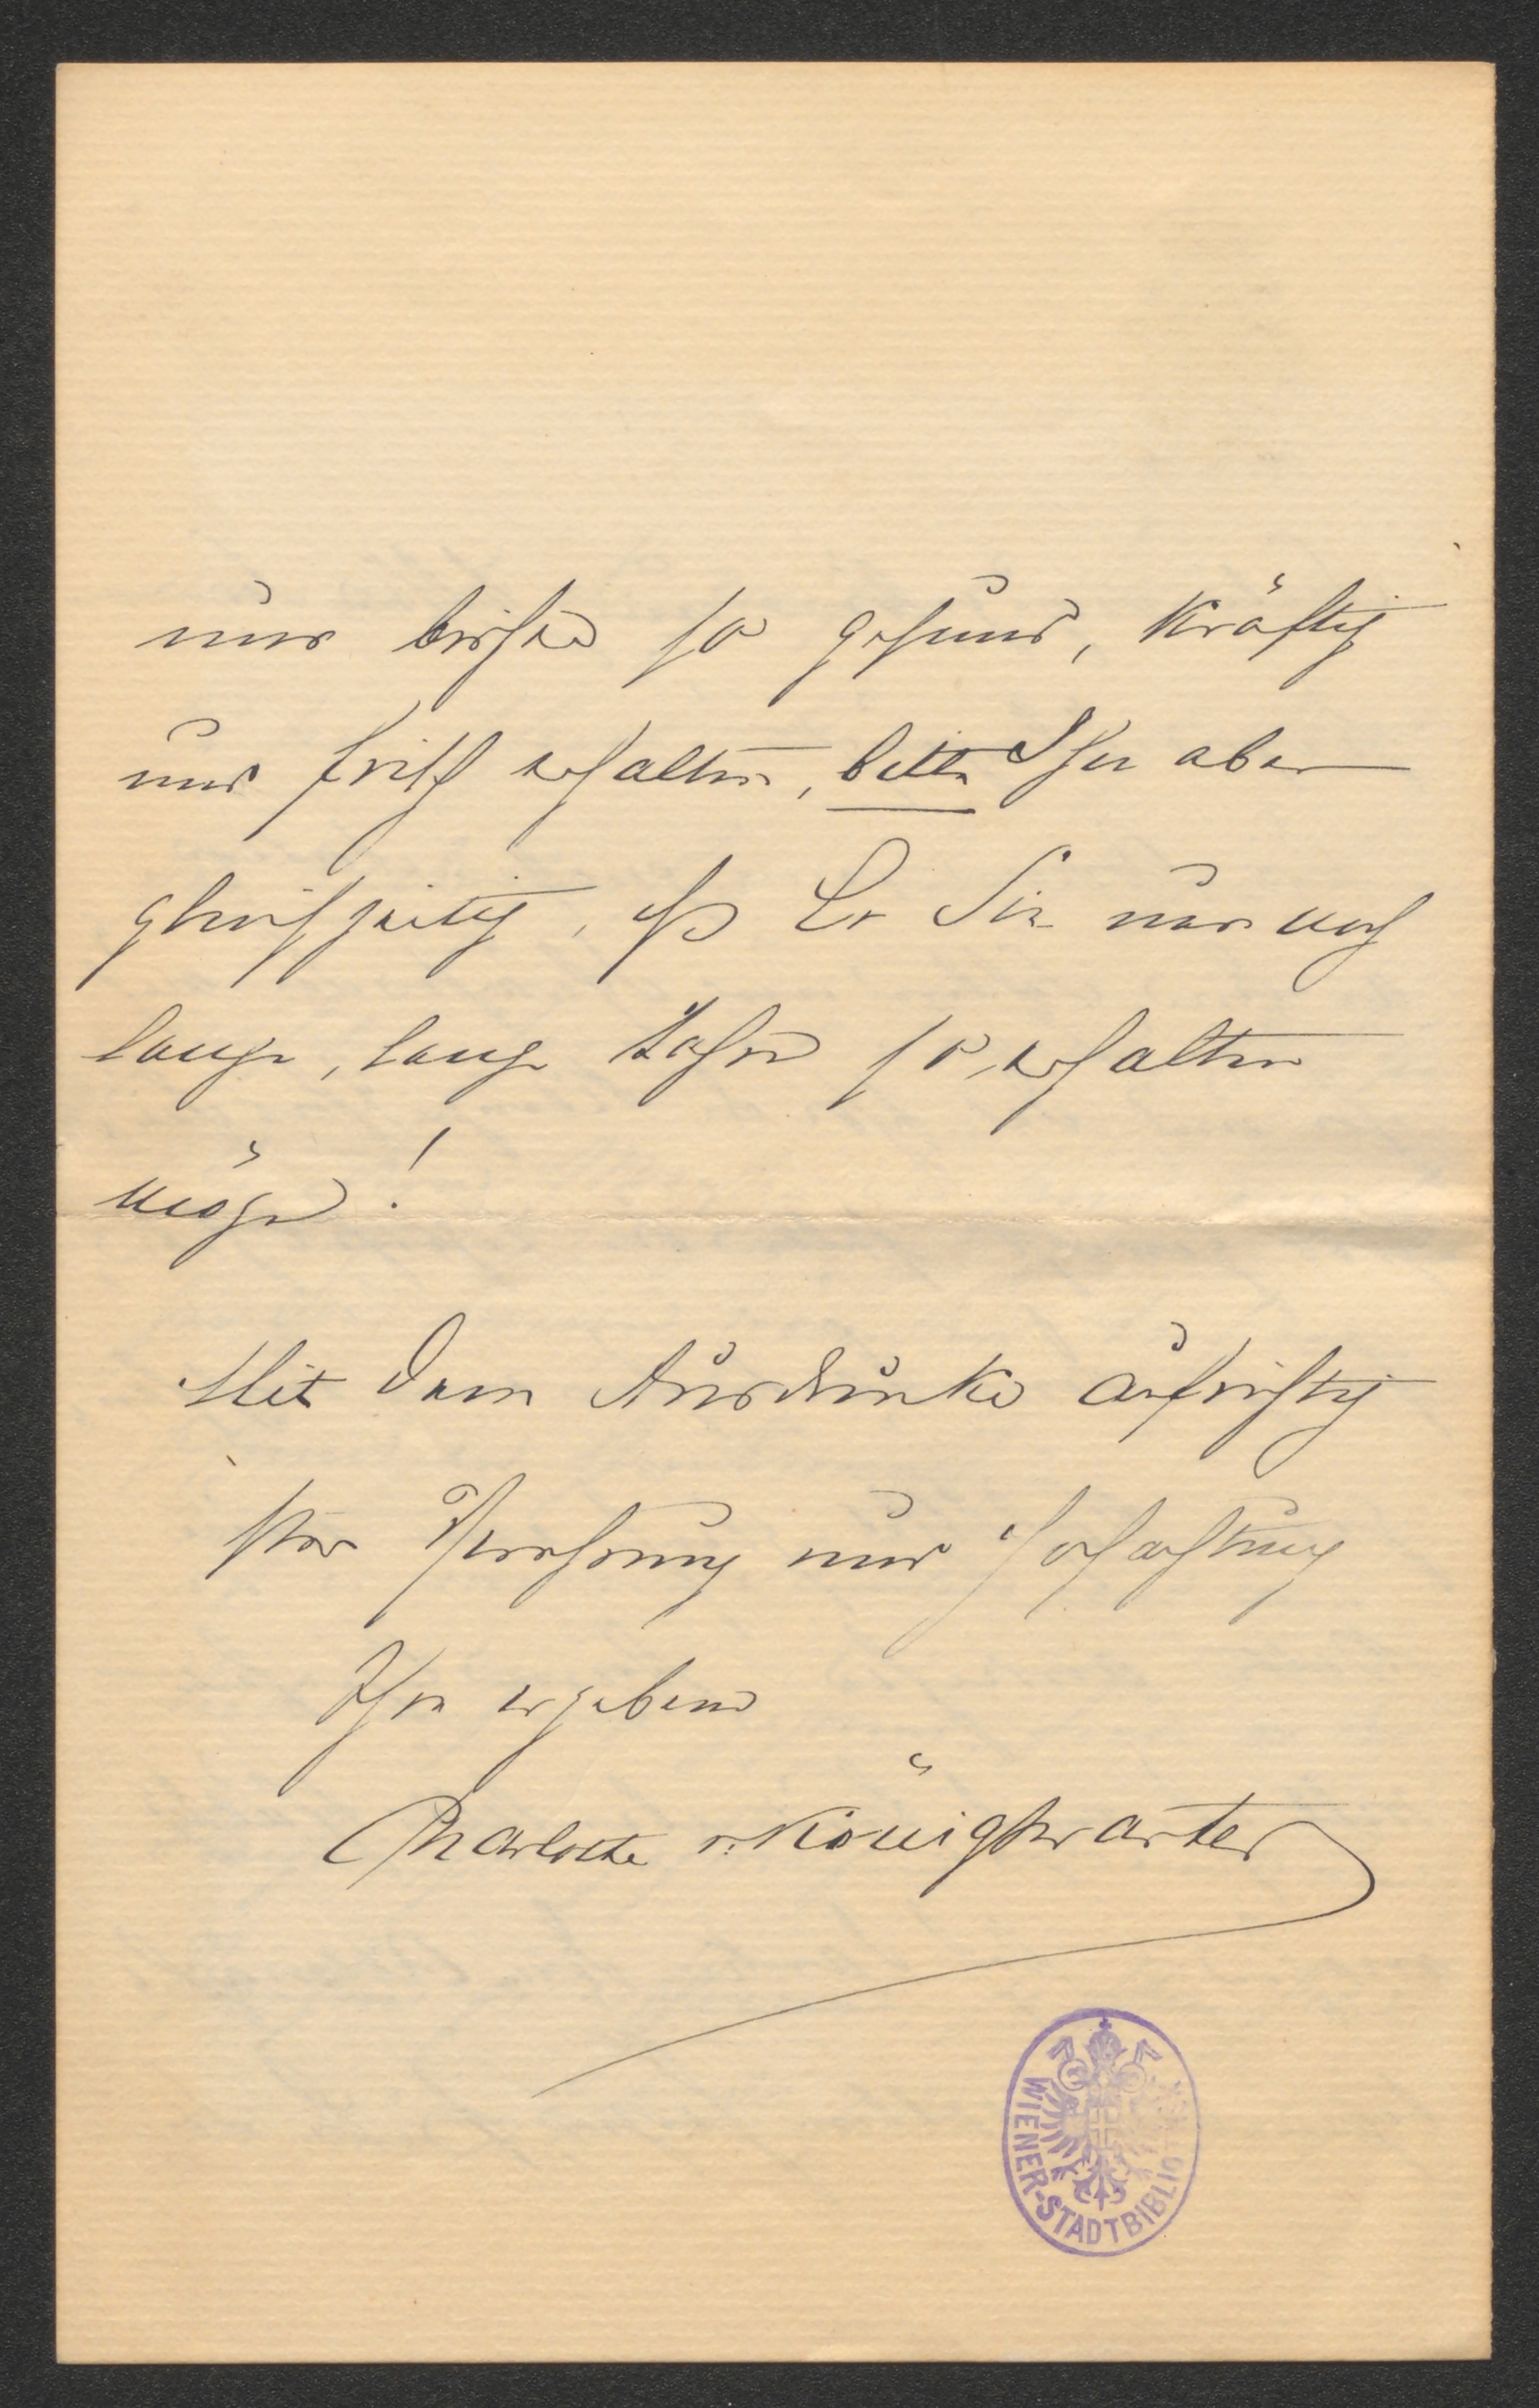 uns bisher so gesund, kräftig
und frisch erhalten, bitte Ihn aber
gleichzeitig, daß Er Sie uns noch
lange, lange Jahre so erhalten
möge!
Mit dem Ausdrucke aufrichtig
ster Verehrung und Hochachtung
Ihre ergebene
Charlotte v: Königswarter
WIENER-STADTBIBLIOTHEK